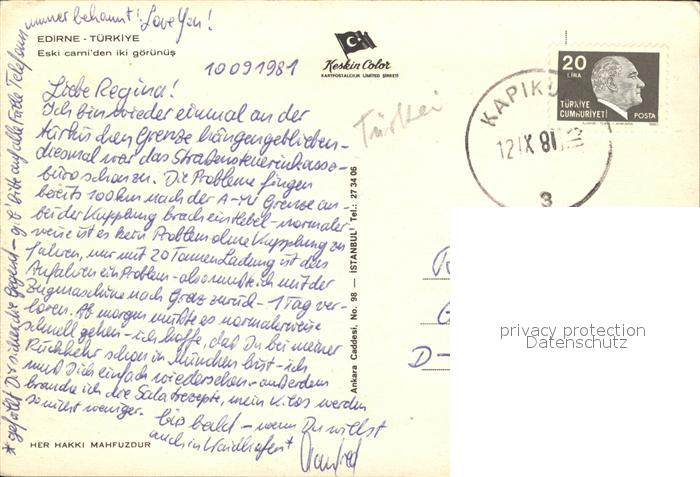 immer bekannt! Love You!
EDİRNE - TÜRKİYE
Eski cami'den iki görünüş
10 09 1981
Keskin Color
KARTPOSTALCILIK LİMİTED ŞİRKETİ
20
LİRA
TÜRKİYE
CUMHURİYETİ
POSTA
KAPIKU
12 IX 81
3
Türkei
Liebe Regina!
Ich bin wieder einmal an der
türkischen Grenze hängengeblieben -
diesmal war das Straßensteuerinkasso-
büro schon zu. Die Probleme fingen
bereits 100km nach der A-YU Grenze an -
bei der Kupplung brach ein Hebel - normaler-
weise ist es kein Problem ohne Kupplung zu
fahren, nur mit 20 Tonnen Ladung ist das
Anfahren ein Problem - also mußte ich mit der
Zugmaschine nach Graz zurück - 1 Tag ver-
loren. Ab morgen müßte es normalerweise
schnell gehen - ich hoffe, daß Du bei meiner
Rückkehr schon in München bist - ich
muß Dich einfach wiedersehen - außerdem
brauche ich die Salatrezepte, mein Kilos werden
so nicht weniger.
bis bald - wenn Du willst
auch in Waidhofen*
Manfred
* gefällt Dir sicher die Gegend - gib' bitte auf alle Fälle Telefonnummer
HER HAKKI MAHFUZDUR
Ankara Caddesi, No. 98 — İSTANBUL Tel.: 27 34 06
D -
privacy protection
Datenschutz